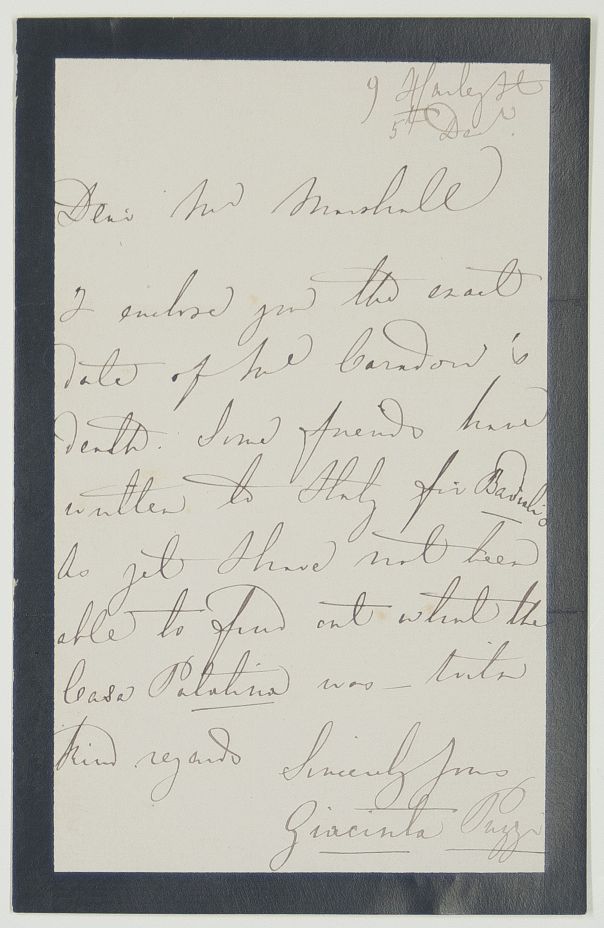 9 Harley St
5th Decr.
Dear Mr Marshall
I enclose you the exact
date of Me Caradori's
death. Some friends have
written to Italy for
As yet I have not been
able to find out what the
Casa Palatina was — with
kind regards Sincerely yours
Giacinta Puzzi